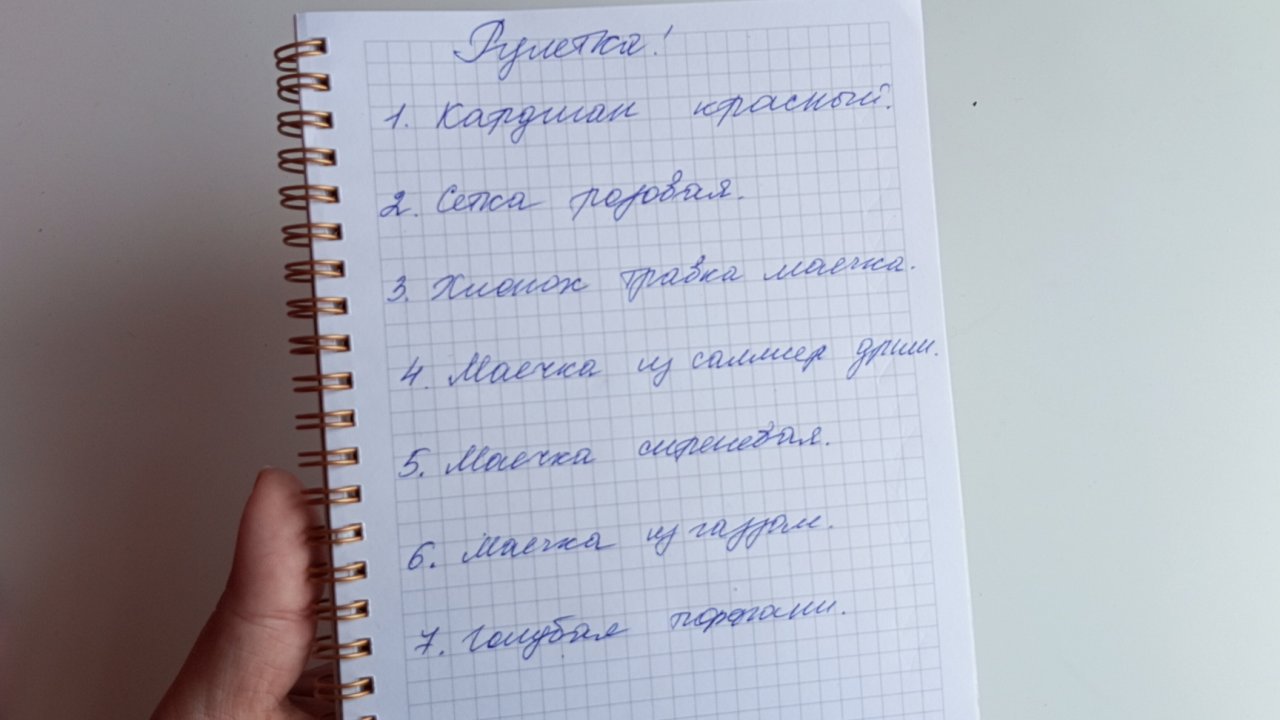 Рулетка!
1. Кардиган красный.
2. Сетка розовая.
3. травка маечка.
4. Маечка из саммер дрим.
5. Маечка сиреневая.
6. Маечка из газзал.
7. Голубая порфали.